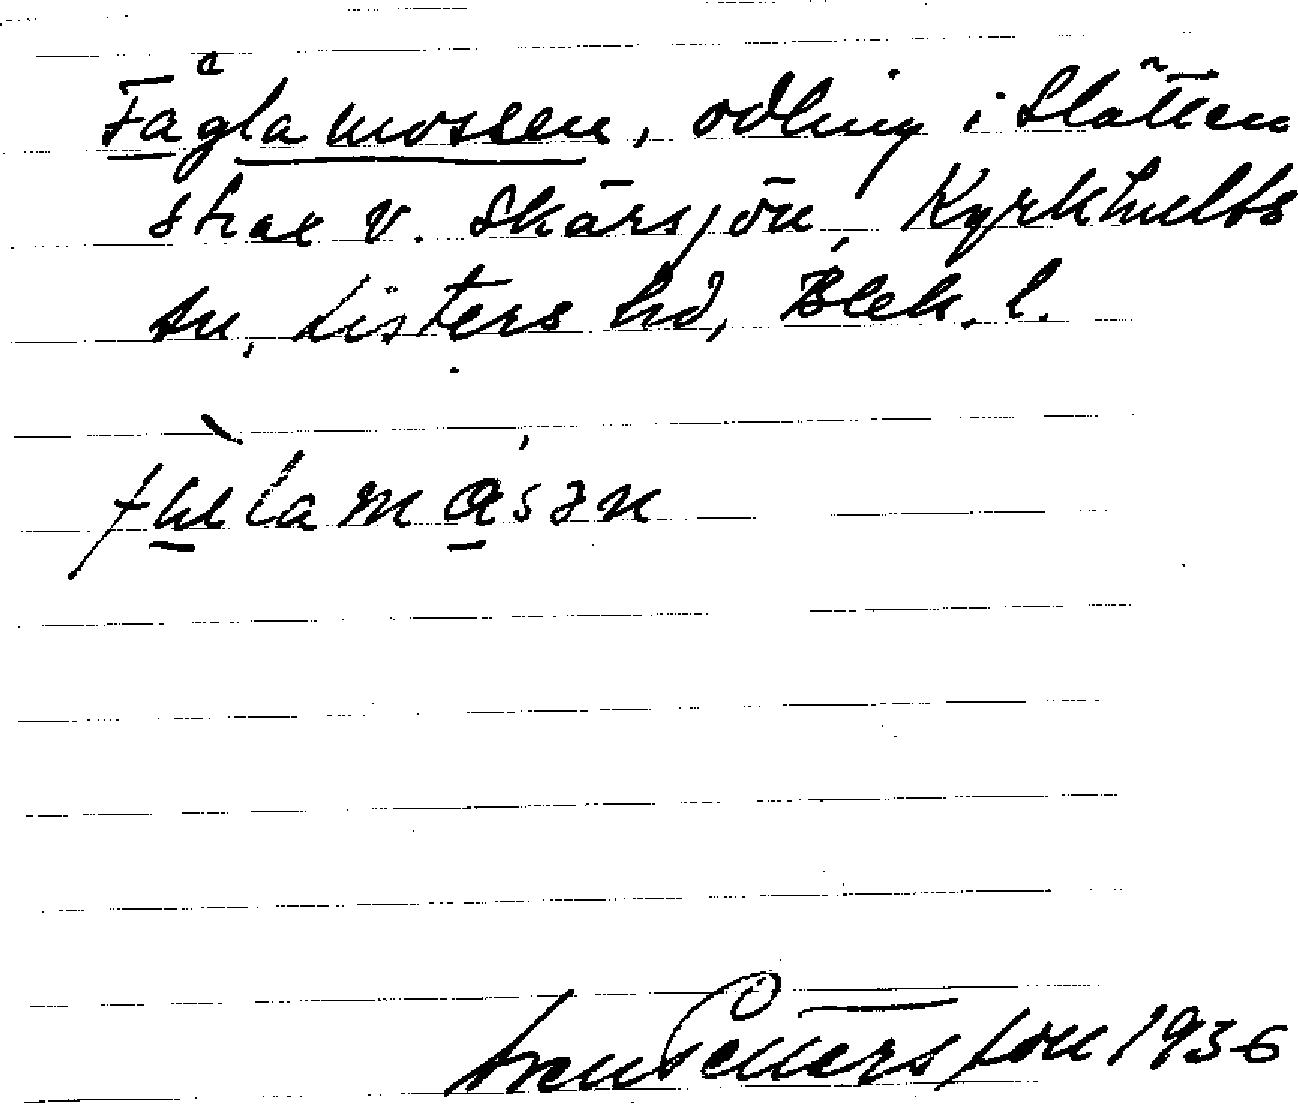 Fåglamossen, odling i Slätten
strax v. Skärsjön, Kyrkhults
sn, Listers hd, Blek. l.
Sven Pettersson 1936